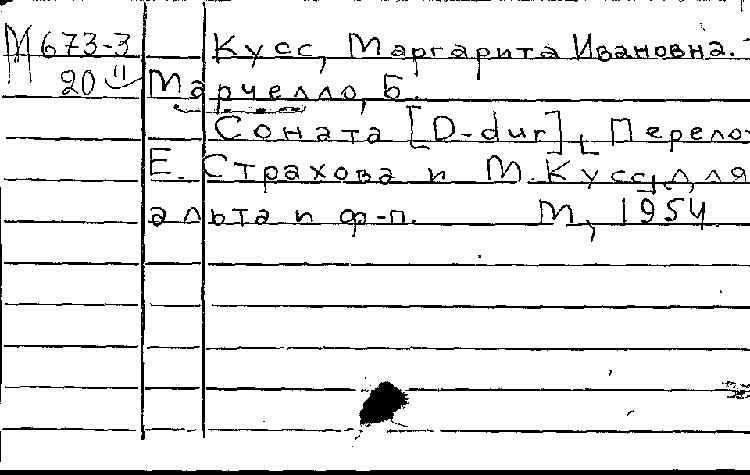 М 673-3 Кусс, Маргарита Ивановна.
20 Марчелло, Б.
Соната [D-dur], Перелож
Е. Страхова и М. Кусс, для
альта и ф-п. М, 1954